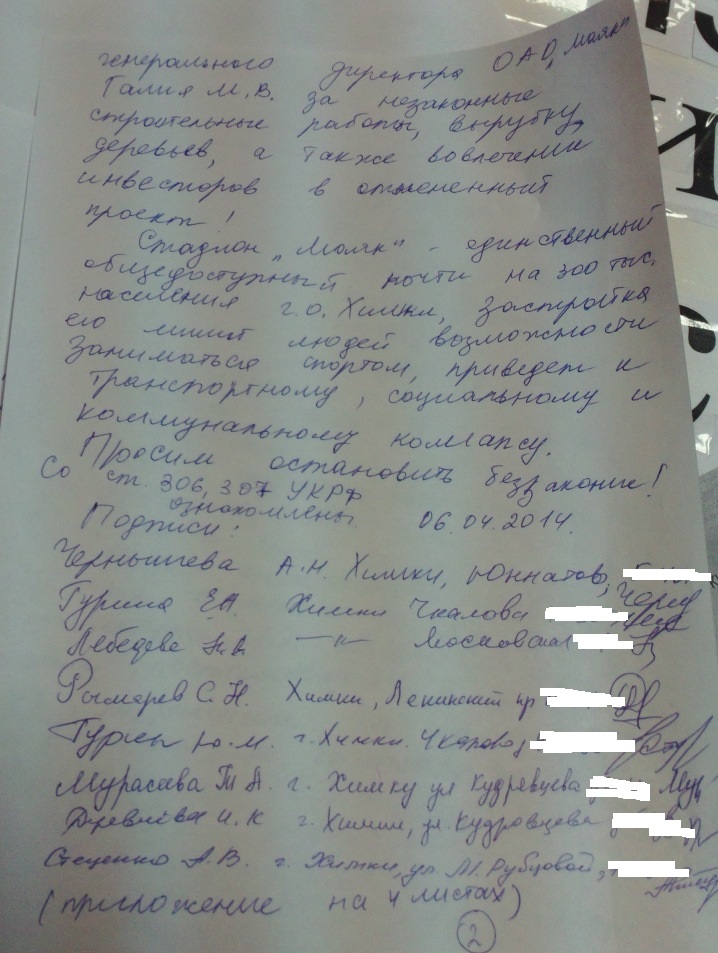 генерального директора ОАО „Маяк"
Галия М.В. за незаконные
строительные работы, вырубку
деревьев, а также вовлечении
инвесторов в отмененный
проект!
Стадион „Маяк" - единственный
общедоступный почти на 300 тыс.
населения г.о. Химки, застройка
его лишит людей возможности
заниматься спортом, приведет к
транспортному, социальному и
коммунальному коллапсу.
Просим остановить беззаконие!
Со ст. 306, 307 УКРФ
ознакомлены
Подписи: 06.04.2014.
Чернышева А.Н. Химки, Юннатов,
Гурина Е.А. Химки Чкалова
Лебедева Н.В. —"— Московская
Рымарев С.Н. Химки, Ленинский пр
Ю.М. г. Химки. Чкалова,
Мурасава Т А. г. Химку ул Кудрявцева
И.К г. Химки, ул. Кудрявцева
Стеценко А.В. г. Химки, ул. М. Рубцовой,
(приложение на 4 листах)
2